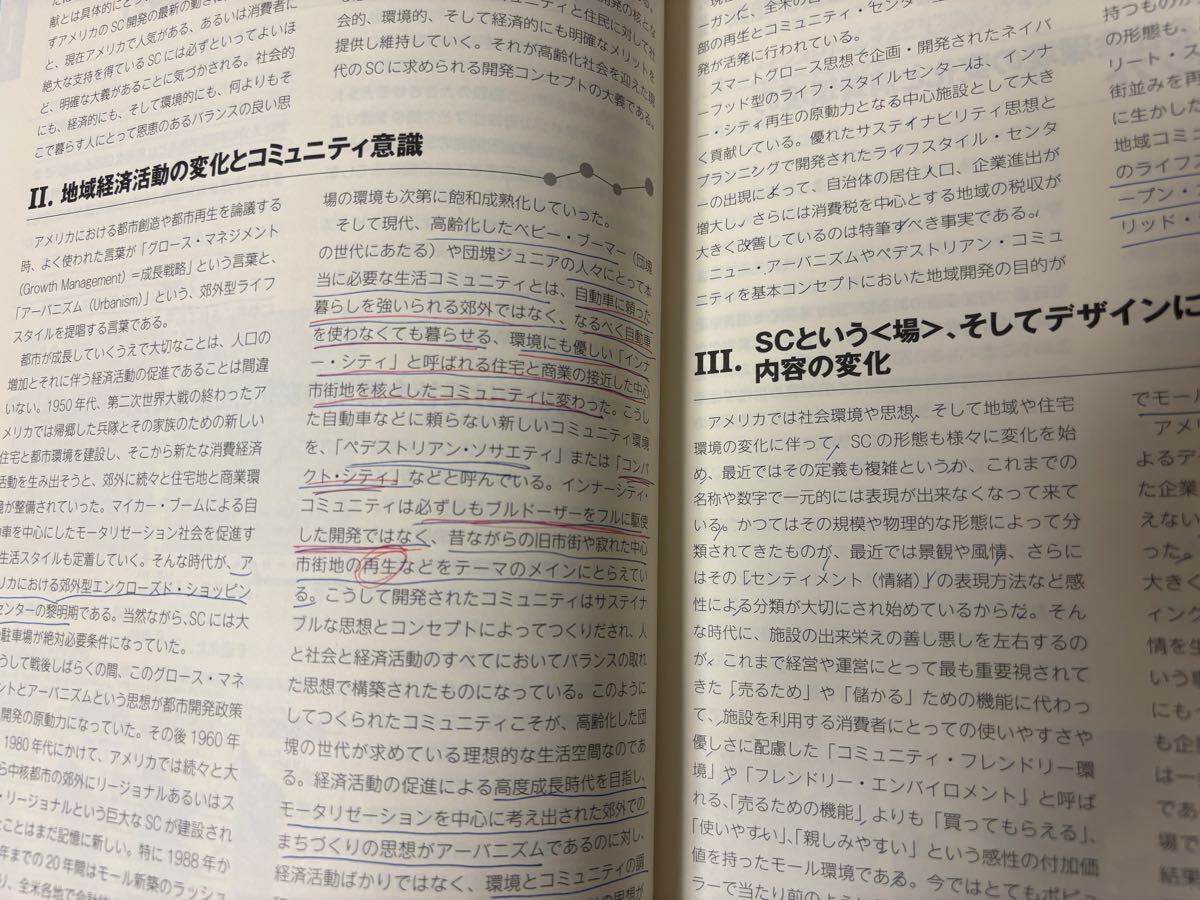 献とは具体的にと
ずアメリカのSC開発の最新の動き
と、現在アメリカで人気がある、あるいは消費者に
絶大な支持を得ているSCには必ずといってよいほ
ど、明確な大義があることに気づかされる。社会的
にも、経済的にも、そして環境的にも、何よりもそ
こで暮らす人にとって恩恵のあるバランスの良い思
開発の核とな
ミュニティと住民に対して社
会的、環境的、そして経済的にも明確なメリットを
提供し維持していく。それが高齢化社会を迎えた現
代のSCに求められる開発コンセプトの大義である。
II. 地域経済活動の変化とコミュニティ意識
アメリカにおける都市創造や都市再生を論議する
時、よく使われた言葉が「グロース・マネジメント
(Growth Management)=成長戦略」という言葉と、
「アーバニズム(Urbanism)」という、郊外型ライフ
スタイルを提唱する言葉である。
都市が成長していくうえで大切なことは、人口の
増加とそれに伴う経済活動の促進であることは間違
いない。1950年代、第二次世界大戦の終わったア
メリカでは帰郷した兵隊とその家族のための新しい
住宅と都市環境を建設し、そこから新たな消費経済
活動を生み出そうと、郊外に続々と住宅地と商業環
境が整備されていった。マイカー・ブームによる自
動車を中心にしたモータリゼーション社会を促進す
生活スタイルも定着していく。そんな時代が、ア
リカにおける郊外型エンクローズド・ショッピン
センターの黎明期である。当然ながら、SCには大
駐車場が絶対必要条件になっていた。
うして戦後しばらくの間、このグロース・マネ
ントとアーバニズムという思想が都市開発政策
開発の原動力になっていた。その後1960年
1980年代にかけて、アメリカでは続々と大
ら中核都市の郊外にリージョナルあるいはス
・リージョナルという巨大なSCが建設され
たことはまだ記憶に新しい。特に1988年か
年までの20年間はモール新築のラッシュ
り、全米各地で
場の環境も次第に飽和成熟化していった。
そして現代、高齢化したベビー・ブーマー(団塊
の世代にあたる)や団塊ジュニアの人々にとって本
当に必要な生活コミュニティとは、自動車に頼った
暮らしを強いられる郊外ではなく、なるべく自動車
を使わなくても暮らせる、環境にも優しい「インナ
ー・シティ」と呼ばれる住宅と商業の接近した中心
市街地を核としたコミュニティに変わった。こうし
た自動車などに頼らない新しいコミュニティ環境
を、「ペデストリアン・ソサエティ」または「コンパ
クト・シティ」などと呼んでいる。インナーシティ・
コミュニティは必ずしもブルドーザーをフルに駆使
した開発ではなく、昔ながらの旧市街や寂れた中心
市街地の再生などをテーマのメインにとらえてい
る。こうして開発されたコミュニティはサステイナ
ブルな思想とコンセプトによってつくりだされ、人
と社会と経済活動のすべてにおいてバランスの取れ
た思想で構築されたものになっている。このように
してつくられたコミュニティこそが、高齢化した団
塊の世代が求めている理想的な生活空間なのであ
る。経済活動の促進による高度成長時代を目指し、
モータリゼーションを中心に考え出された郊外での
まちづくりの思想がアーバニズムであるのに対し、
経済活動ばかりではなく、環境とコミュニティの調
ーガンに、全米の
部の再生とコミュニティ・センター
発が活発に行われている。
スマートグロース思想で企画・開発されたネイバ
ーフッド型のライフ・スタイルセンターは、インナ
ー・シティ再生の原動力となる中心施設として大き
く貢献している。優れたサステイナビリティ思想と
プランニングで開発されたライフスタイル・センタ
ーの出現によって、自治体の居住人口、企業進出が
増大し、さらには消費税を中心とする地域の税収が
大きく改善しているのは特筆すべき事実である。
ニュー・アーバニズムやペデストリアン・コミュ
ニティを基本コンセプトにおいた地域開発の目的が
持つものが
の形態も、
リート・ス
街並みを再
に生かした
地域コミュ
のライフス
ープン・
リッド・
III. SCという<場>、そしてデザインに
内容の変化
アメリカでは社会環境や思想、そして地域や住宅
環境の変化に伴って、SCの形態も様々に変化を始
め、最近ではその定義も複雑というか、これまでの
名称や数字で一元的には表現が出来なくなって来て
いる。かつてはその規模や物理的な形態によって分
類されてきたものが、最近では景観や風情、さらに
はその「センティメント(情緒)」の表現方法など感
性による分類が大切にされ始めているからだ。そん
な時代に、施設の出来栄えの善し悪しを左右するの
が、これまで経営や運営にとって最も重要視されて
きた「売るため」や「儲かる」ための機能に代わっ
て、施設を利用する消費者にとっての使いやすさや
優しさに配慮した「コミュニティ・フレンドリー環
境」や「フレンドリー・エンバイロメント」と呼ば
れる、「売るための機能」よりも「買ってもらえる」、
「使いやすい」、「親しみやすい」という感性の付加価
値を持ったモール環境である。今ではとてもポピュ
ラーで当たり前のような
でモール
アメリ
よるデー
た企業
えない
った。
大きく
ィング
情を生
いう
にもっ
も企
は一
であ
場で
結果